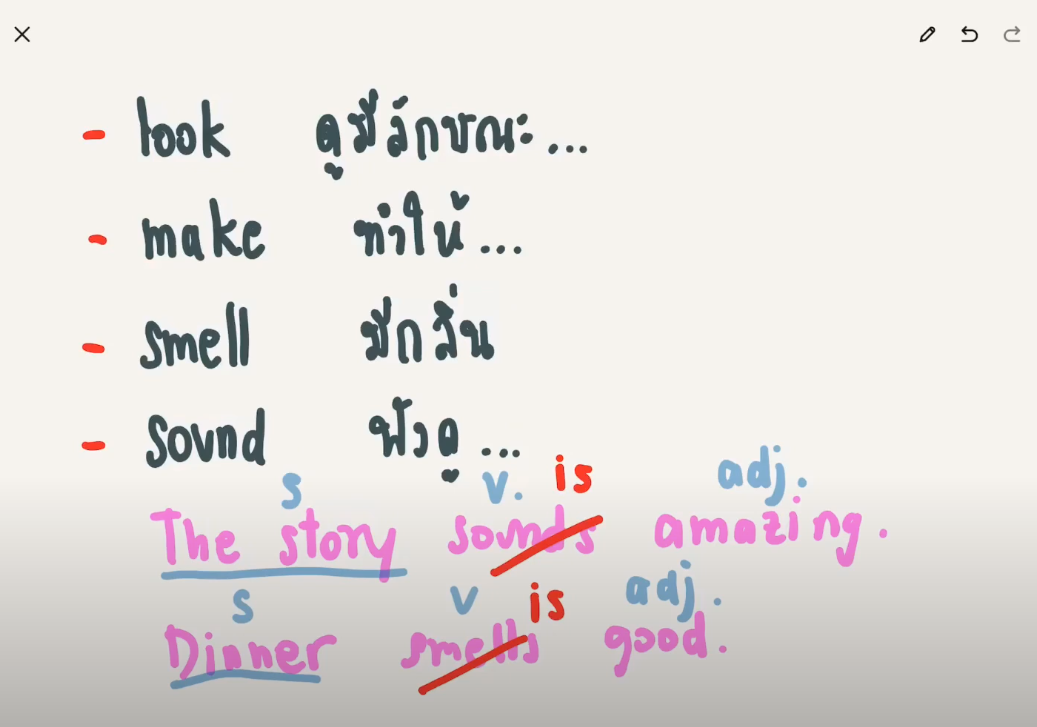 - look ดูมีลักษณะ...
- make ทำให้...
- smell มีกลิ่น
- sound ฟังดู...
s v. is adj.
The story sounds amazing.
s v is adj.
Dinner smells good.